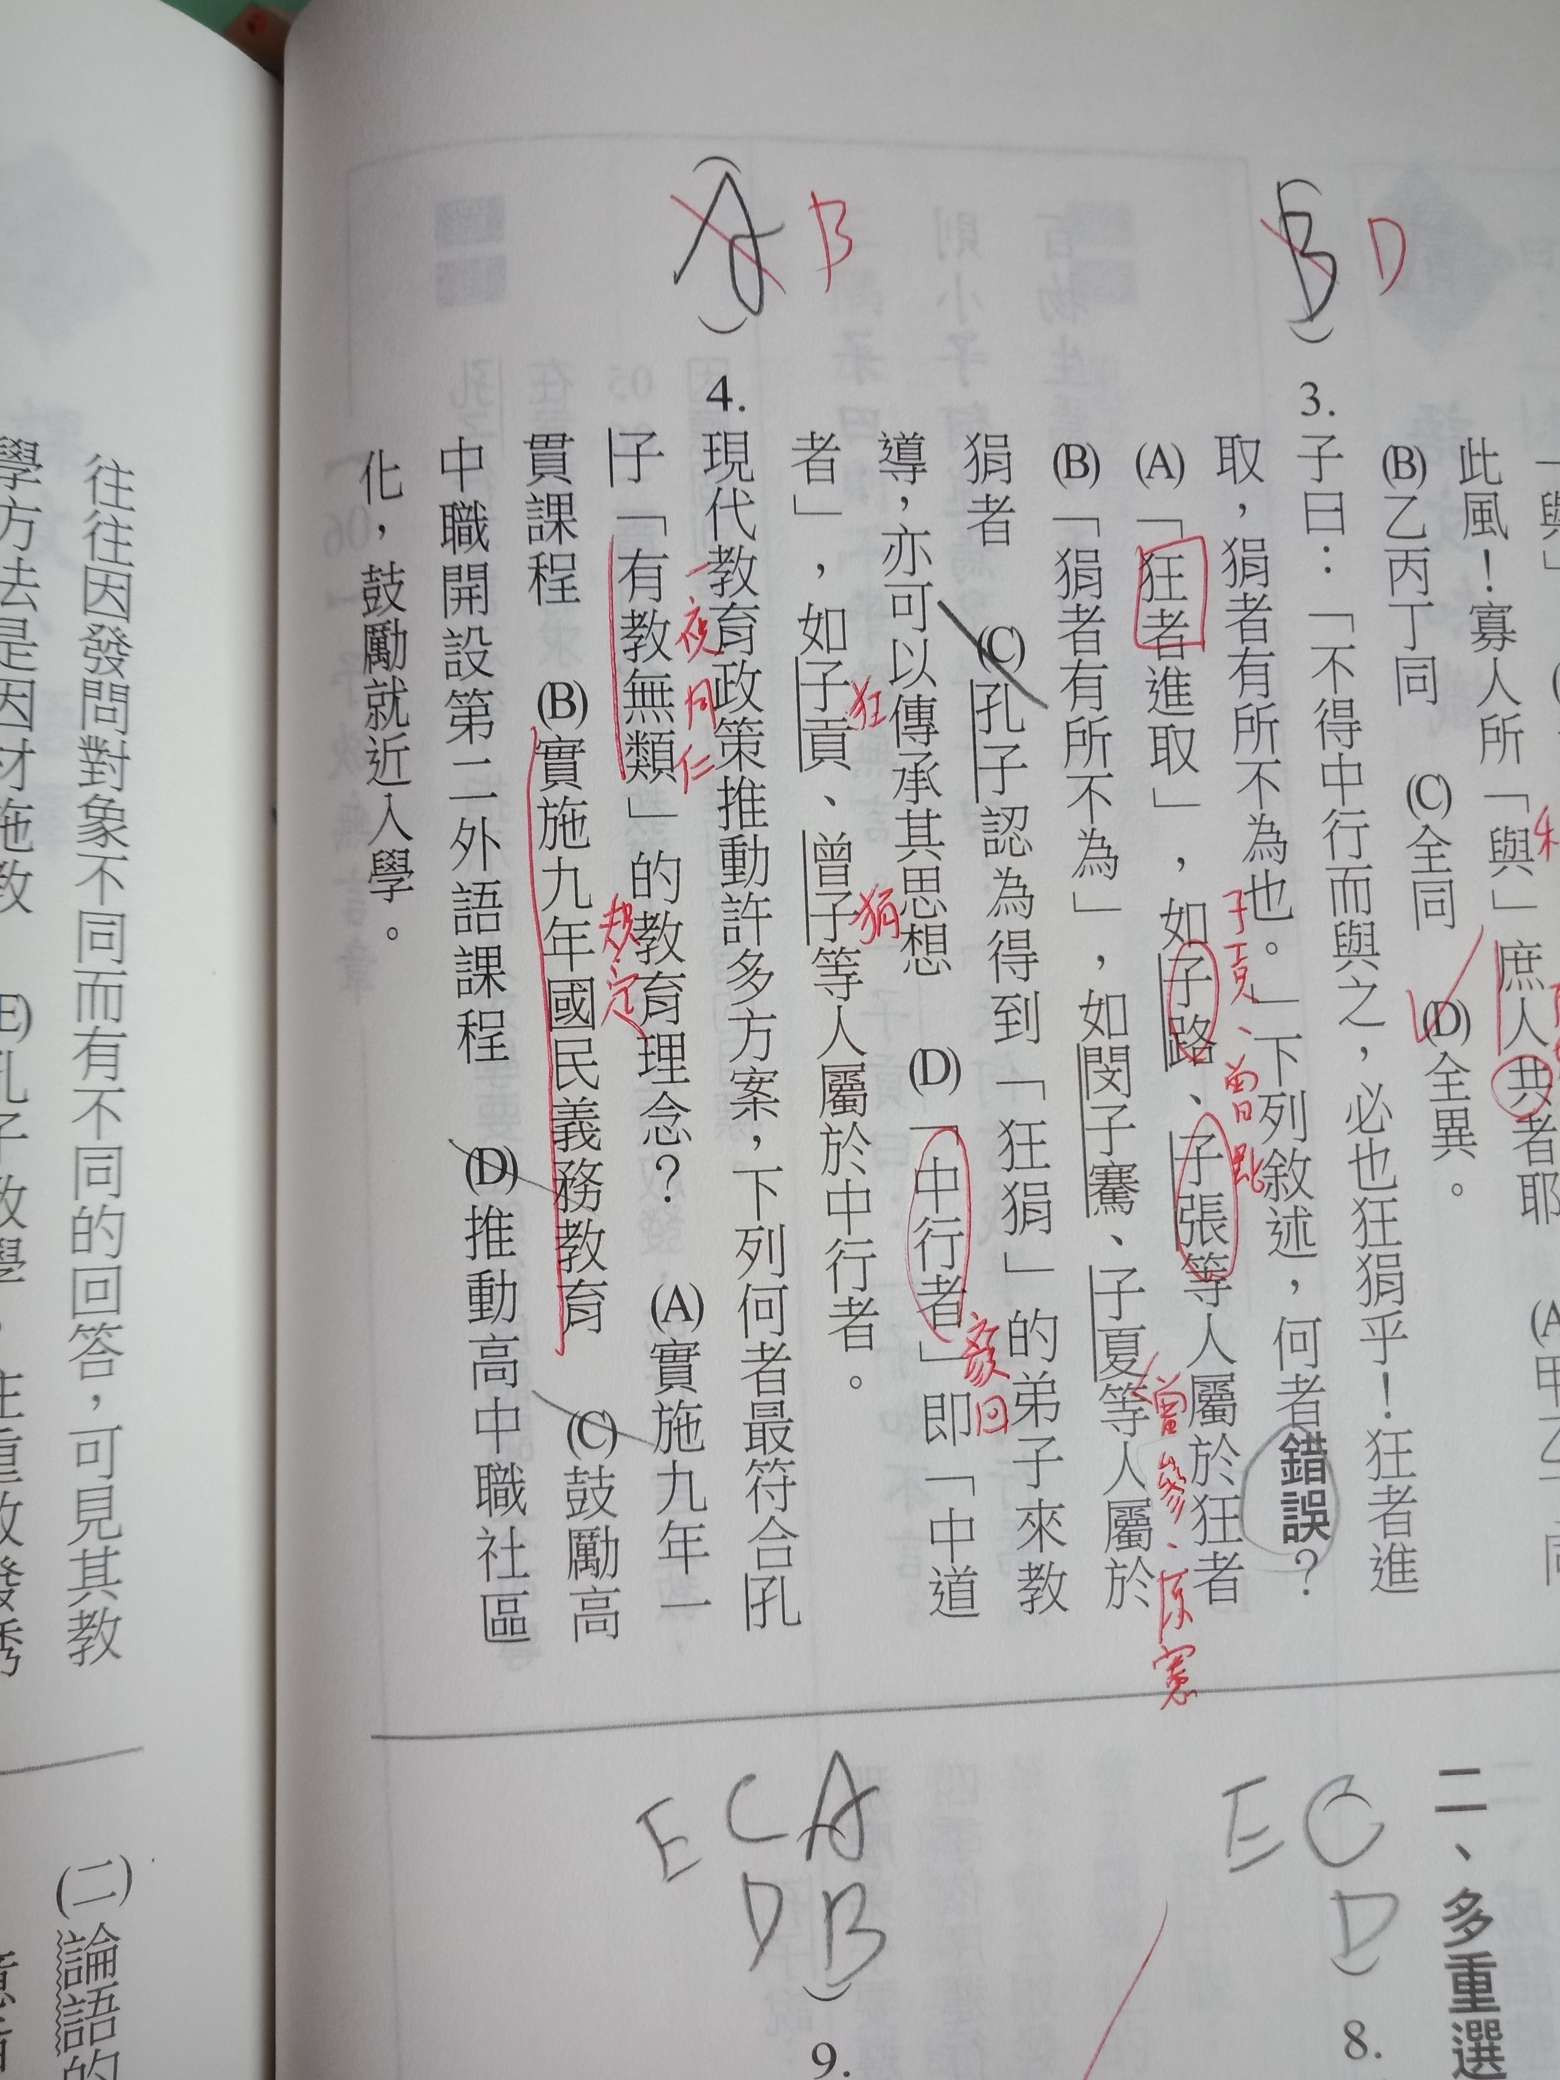 二、多重選
一與」
此風！寡人所「與」庶人共者耶
(B)乙丙丁同　(C)全同　(D)全異。
B D
3. 子曰：「不得中行而與之，必也狂狷乎！狂者進
取，狷者有所不為也。」下列敘述，何者錯誤？
子貢、曾點
(A)「狂者進取」，如子路、子張等人屬於狂者
曾參、原憲
(B)「狷者有所不為」，如閔子騫、子夏等人屬於
狷者　(C)孔子認為得到「狂狷」的弟子來教
導，亦可以傳承其思想　(D)「中行者」即「中道
顏回
者」，如子貢、曾子等人屬於中行者。
狂
狷
A B
4. 現代教育政策推動許多方案，下列何者最符合孔
一視同仁
子「有教無類」的教育理念？　(A)實施九年一
規定
貫課程　(B)實施九年國民義務教育　(C)鼓勵高
中職開設第二外語課程　(D)推動高中職社區
化，鼓勵就近入學。
C D E
8.
A B C D E
9.
往往因發問對象不同而有不同的回答，可見其教
學方法是因材施教　(E)孔子教學，注重啟發誘
(二)論語的